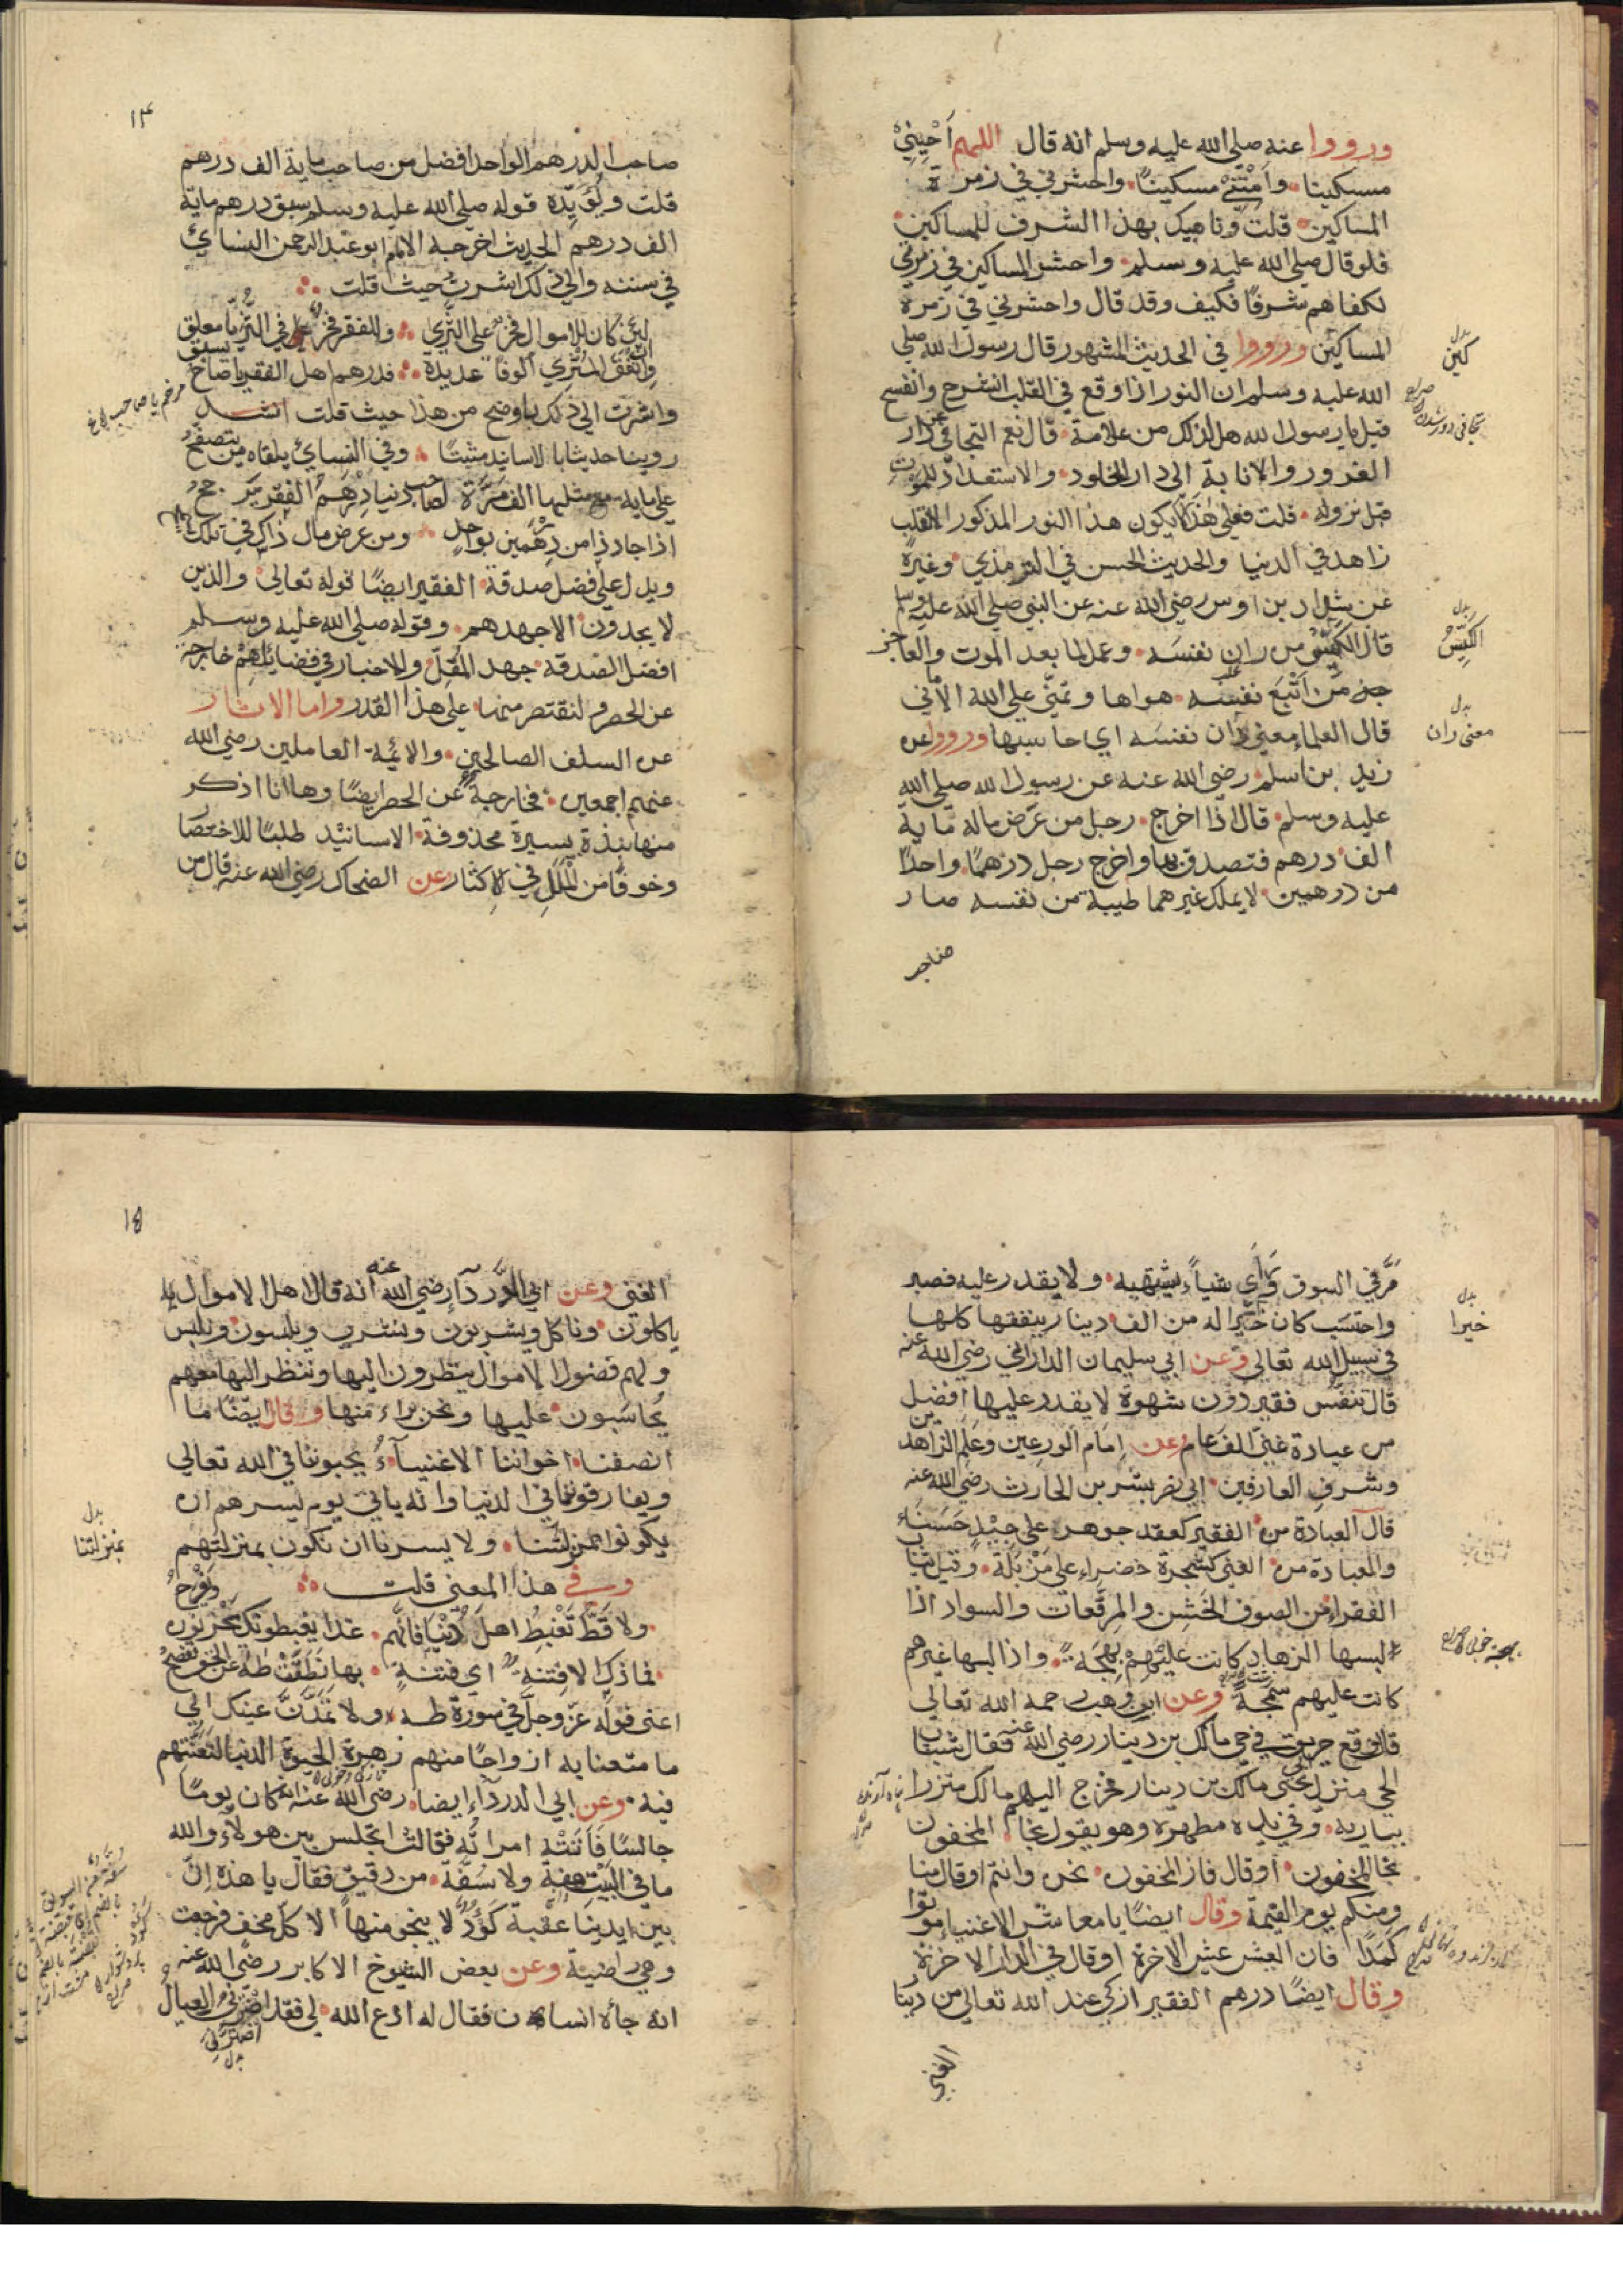 ورووا عنه صلى الله عليه وسلم انه قال اللهم أحيني
مسكينا وأمتني مسكينا واحشرني في زمرة
المساكين قلت وناهيك بهذا الشرف للمساكين
فلو قال صلى الله عليه وسلم واحشر المساكين في زمرتي
لكفاهم شرفا فكيف وقد قال واحشرني في زمرة
المساكين ورووا في الحديث المشهور قال رسول الله صلى
الله عليه وسلم ان النور اذا وقع في القلب انشرح وانفسح
قيل يا رسول الله هل لذلك من علامة قال نعم التجافي عن دار
الغرور والانابة الى دار الخلود والاستعداد للموت
قبل نزوله قلت فعلى هذا لا يكون هذا النور المذكور الا لقلب
زاهد في الدنيا والحديث الحسن في الترمذي وغيره
عن شداد بن اوس رضي الله عنه عن النبي صلى الله عليه وسلم
قال الكيّس من دان نفسه وعمل لما بعد الموت والعاجز
من أتبع نفسه هواها وتمنّى على الله الأماني
قال العلماء معنى دان نفسه اي حاسبها ورووا عن
زيد بن اسلم رضي الله عنه عن رسول الله صلى الله
عليه وسلم قال اذا اخرج رجل من عرض ماله ماية
الف درهم فتصدق بها واخرج رجل درهما واحدا
من درهمين لا يملك غيرهما طيبة من نفسه صار
صاحب
بدل
كين
بدل
الكيّس
بدل
معنى دان
١٤
صاحب الدرهم الواحد افضل من صاحب ماية الف درهم
قلت ويؤيده قوله صلى الله عليه وسلم سبق درهم ماية
الف درهم الحديث اخرجه الامام ابو عبد الرحمن النسائي
في سننه والى ذلك اشرت حيث قلت
لئن كان للاموال فخر على الثرى وللفقر فخر في الثريا معلق
وان انفق المثري ألوفا عديدة فدرهم اهل الفقر يا صاح يسبق
مرخم يا صاحب
واشرت الى ذلك باوضح من هذا حيث قلت
روينا حديثا بالاسانيد مثبتا وفي النسائي يلقاه من يتصفح
على ماية مع مثلها الف مرة لصاحب دنيا درهم الفقر يرجح
اذا جاد ذا من درهمين بواحد ومن عرض مال ذاك في تلك
ويدل على فضل صدقة الفقير ايضا قوله تعالى والذين
لا يجدون الا جهدهم وقوله صلى الله عليه وسلم
افضل الصدقة جهد المقلّ والاخبار في فضايلهم خارجة
عن الحصر ولنقتصر منها على هذا القدر واما الاثار
عن السلف الصالحين والائمة العاملين رضي الله
عنهم اجمعين فخارجة عن الحصر ايضا وها انا اذكر
منها نبذة يسيرة محذوفة الاسانيد طلبا للاختصار
وخوفا من الملل في الإكثار عن الضحاك رضي الله عنه قال من
مرّ في السوق فرأى شيأ يشتهيه ولا يقدر عليه فصبر
واحتسب كان خيرا له من الف دينار ينفقها كلها
في سبيل الله تعالى وعن ابي سليمان الداراني رضي الله عنه
قال تنفّس فقير دون شهوة لا يقدر عليها افضل
من عبادة غني الف عام وعن إمام الورعين وعلم الزاهدين
وشرف العارفين ابي نصر بشر بن الحارث رضي الله عنه
قال العبادة من الفقير كعقد جوهر على جيد حسناء
والعبادة من الغني كشجرة خضراء على مزبلة وقيل ثياب
الفقراء من الصوف الخشن والمرقعات والسواد اذا
لبسها الزهاد كانت عليهم بهجة واذا لبسها غيرهم
كانت عليهم سمجة وعن ابن وهب رحمه الله تعالى
قال وقع حريق في حي مالك بن دينار رضي الله عنه فقال شباب
الحي منزل مالك بن دينار فخرج اليهم مالك متزرا
ببارية وفي يده مطهرة وهو يقول نجا المخفون
نجا المخفون أو قال فاز المخفون نحن وانتم او قال منا
ومنكم يوم القيمة وقال ايضا يا معاشر الاغنياء موتوا
كمدا فان العيش عيش الاخرة او قال في الدار الاخرة
وقال ايضا درهم الفقير ازكى عند الله تعالى من دينار
الغني
بدل
خيرا
١٥
الغني وعن ابي الدرداء رضي الله عنه انه قال اهل الاموال
ياكلون وناكل ويشربون ونشرب ويلبسون ونلبس
ولهم فضول الاموال ينظرون اليها وننظر اليها معهم
يحاسبون عليها ونحن براء منها وقال ايضا ما
انصفنا اخواننا الاغنياء يحبوننا في الله تعالى
ويفارقوننا في الدنيا وانه ياتي يوم يسرهم ان
يكونوا بمنزلتنا ولا يسرنا ان نكون بمنزلتهم
بدل
بمنزلتنا
وفي هذا المعنى قلت
ولا قط تغبط اهل دنيا فانهم غدا يغبطونك يحزنون وتفرح
فما ذاك الا فتنة اي فتنة بها نطقت طه عن الحق تفصح
اعنى قوله عز وجل في سورة طه ولا تمدّنّ عينك الى
ما متعنا به ازواجا منهم زهرة الحيوة الدنيا لنفتنهم
فيه وعن ابي الدرداء ايضا رضي الله عنه انه كان يوما
جالسا فأتته امرأته فقالت اتجلس بين هولاء والله
ما في البيت هفة ولا سفة من دقيق فقال يا هذه إنّ
بين ايدينا عقبة كؤود لا ينجو منها الا كل مخف فرجعت
وهي راضية وعن بعض الشيوخ الاكابر رضي الله عنه
انه جاه انسان فقال له ادع الله لي فقد اضرّ بي العيال
بدل